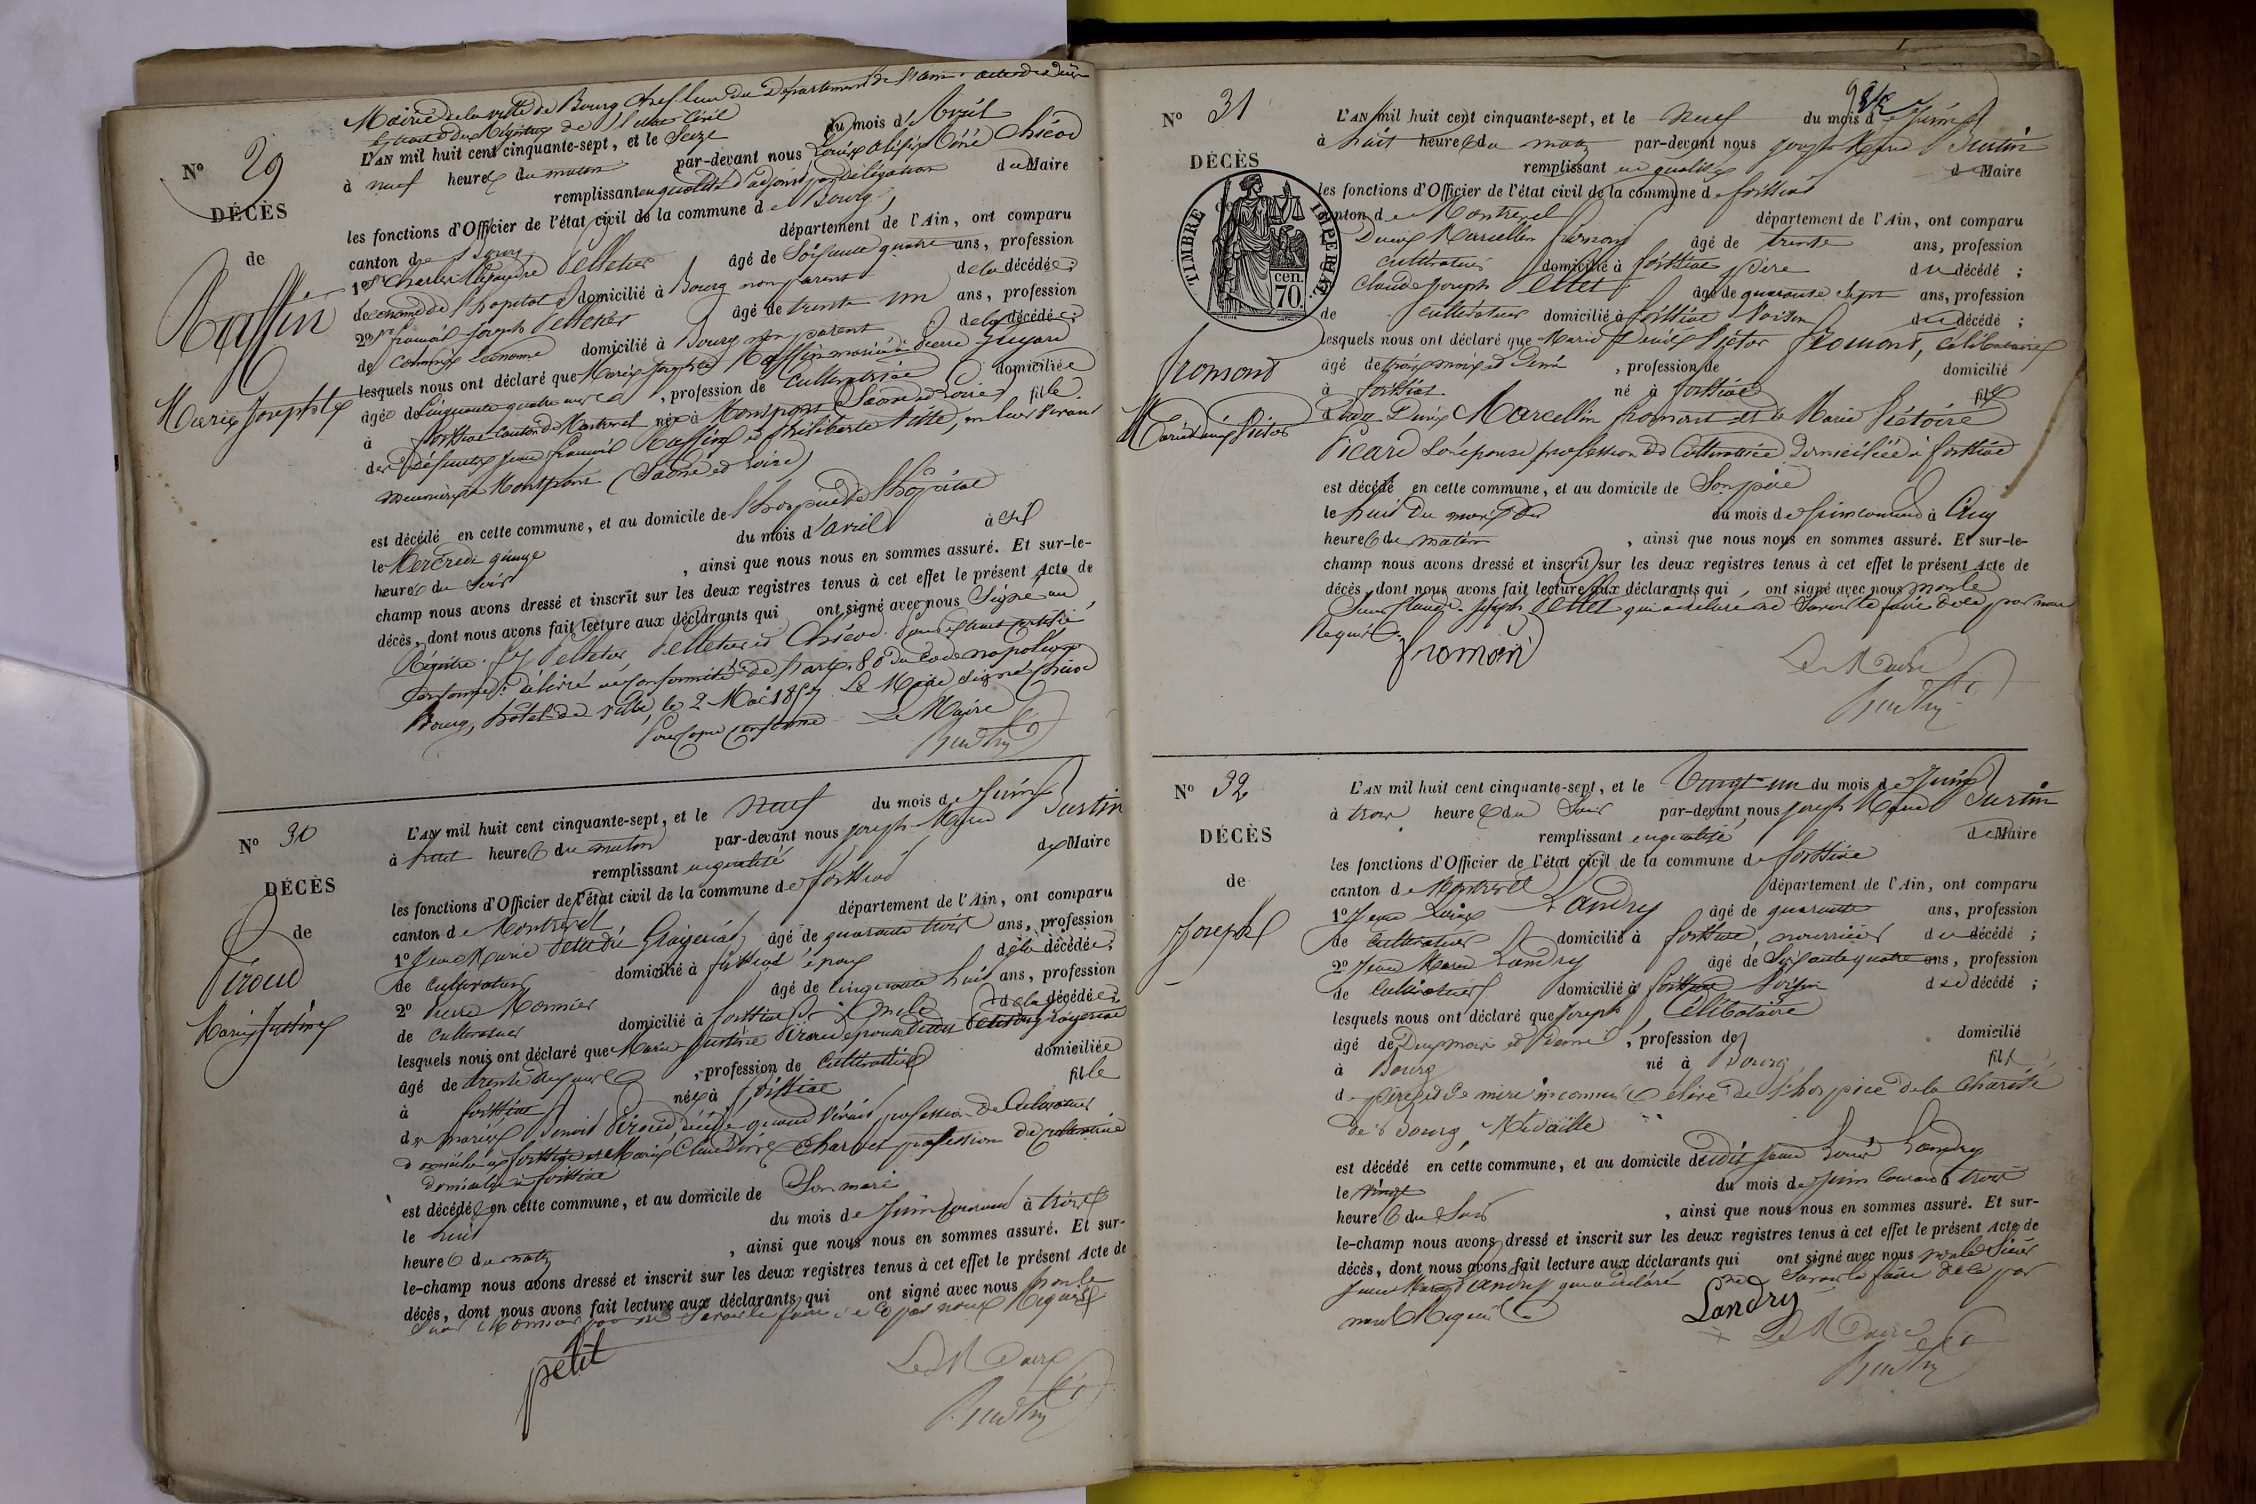 Mairie de la ville de Bourg chef lieu du Département de l'ain. acte de décès
Extrait du Registre de l'état Civil
N° 29
DÉCÈS
de
Raffin
Marie Josephte
L'AN mil huit cent cinquante-sept, et le Seize du mois d'Avril
à neuf heures du matin par-devant nous Louis Chicod
remplissant en qualité d'adjoint par délégation du Maire
les fonctions d'Officier de l'état civil de la commune de Bourg
canton de Bourg département de l'Ain, ont comparu
1° Sr Charles Alexandre Pelletier âgé de Soixante quatre ans, profession
d'économe de l'hopital domicilié à Bourg non parent de la décédée;
2° Sr françois Joseph Pelletier âgé de trente un ans, profession
de commis économe domicilié à Bourg non parent de la décédée;
lesquels nous ont déclaré que Marie Josephte Raffin mariée à Pierre Guyard
âgée de Cinquante quatre ans, profession de Cultivatrice domiciliée
à foissiat canton de Montrevel née à Montpont (Saone et Loire) fille
des défunts Jean françois Raffin et philiberte Tête, en leur vivant
meuniers à Montpont (Saone et Loire)
est décédé en cette commune, et au domicile de l'hospice de l'hôpital
le Mercredi quinze du mois d'avril à Six
heures du Soir, ainsi que nous nous en sommes assuré. Et sur-le-
champ nous avons dressé et inscrit sur les deux registres tenus à cet effet le présent Acte de
décès, dont nous avons fait lecture aux déclarants qui ont signé avec nous Signé au
Régistre Pelletier Pelletier et Chicod. Pour extrait certifié
conforme: délivré en conformité de l'art. 80 du Code napoléon
Bourg, hôtel de ville, le 2 Mai 1857. Le Maire signé Chicod
Pour Copie conforme Le Maire
Burtin
N° 30
DÉCÈS
de
Piroud
Marie Justine
L'AN mil huit cent cinquante-sept, et le neuf du mois de Juin
à huit heures du matin par-devant nous Joseph Marie Burtin
remplissant en qualité de Maire
les fonctions d'Officier de l'état civil de la commune de foissiat
canton de Montrevel département de l'Ain, ont comparu
1° Jean Marie Petit dit Grageriat âgé de quarante trois ans, profession
de cultivateur domicilié à foissiat époux de la décédée;
2° Pierre Monnier âgé de cinquante huit ans, profession
de cultivateur domicilié à foissiat oncle de la décédée;
lesquels nous ont déclaré que Marie Justine Piroud épouse dudit Petit dit Grageriat
âgé de trente deux ans, profession de Cultivatrice domiciliée
à foissiat née à foissiat fille
des mariés Benoit Piroud, décédé quand vivait profession de Cultivateur
domicilié à foissiat et Marie Claudine Charvet profession de cultivatrice
domiciliée à foissiat
est décédée en cette commune, et au domicile de Son mari
le huit du mois de Juin courant à trois
heures du matin, ainsi que nous nous en sommes assuré. Et sur-
le-champ nous avons dressé et inscrit sur les deux registres tenus à cet effet le présent Acte de
décès, dont nous avons fait lecture aux déclarants qui ont signé avec nous non le
Sieur Monnier pour ne Savoir le faire de ce par nous Requis
petit
Le Maire
Burtin
N° 31
DÉCÈS
TIMBRE IMPERIAL
cen. 70.
fromont
Marie denis Victor
L'AN mil huit cent cinquante-sept, et le neuf du mois de Juin
à huit heures du matin par-devant nous Joseph Marie Burtin
remplissant en qualité de Maire
les fonctions d'Officier de l'état civil de la commune de foissiat
canton de Montrevel département de l'Ain, ont comparu
Denis Marcellin fromont âgé de trente ans, profession
cultivateur domicilié à foissiat père du décédé;
Claude Joseph Pellet âgé de quarante Sept ans, profession
de cultivateur domicilié à foissiat Voisin du décédé;
lesquels nous ont déclaré que Marie Denis Victor fromont, Célibataire
âgé de trois mois et Demi, profession de domicilié
à foissiat né à foissiat fils
dudit Denis Marcellin fromont et de Marie Victoire
Picard Son épouse profession de Cultivatrice domiciliée à foissiat
est décédé en cette commune, et au domicile de Son père
le huit du mois de du mois de Juin courant à Cinq
heures du matin, ainsi que nous nous en sommes assuré. Et sur-le-
champ nous avons dressé et inscrit sur les deux registres tenus à cet effet le présent Acte de
décès, dont nous avons fait lecture aux déclarants qui ont signé avec nous non le
Sieur Claude Joseph Pellet qui a déclaré ne Savoir le faire de ce par nous
Requis.
fromon
Le Maire
Burtin
N° 32
DÉCÈS
de
Joseph
L'AN mil huit cent cinquante-sept, et le Vingt un du mois de Juin
à trois heures du Soir par-devant nous Joseph Marie Burtin
remplissant en qualité de Maire
les fonctions d'Officier de l'état civil de la commune de foissiat
canton de Montrevel département de l'Ain, ont comparu
1° Jean Louis Landry âgé de quarante ans, profession
de Cultivateur domicilié à foissiat, nourricier du décédé;
2° Jean Marie Landry âgé de Soixante quatre ans, profession
de Cultivateur domicilié à foissiat Voisin du décédé;
lesquels nous ont déclaré que Joseph, Célibataire
âgé de Deux mois et Demi, profession de domicilié
à Bourg né à Bourg fils
de père et de mère inconnus élève de l'hospice de la Charité
de Bourg, Médaille
est décédé en cette commune, et au domicile dudit Jean Louis Landry
le vingt du mois de Juin courant à trois
heures du Soir, ainsi que nous nous en sommes assuré. Et sur-
le-champ nous avons dressé et inscrit sur les deux registres tenus à cet effet le présent Acte de
décès, dont nous avons fait lecture aux déclarants qui ont signé avec nous non le Sieur
Jean Marie Landry qui a déclaré ne Savoir le faire de ce par
nous Requis
Landry
Le Maire
Burtin